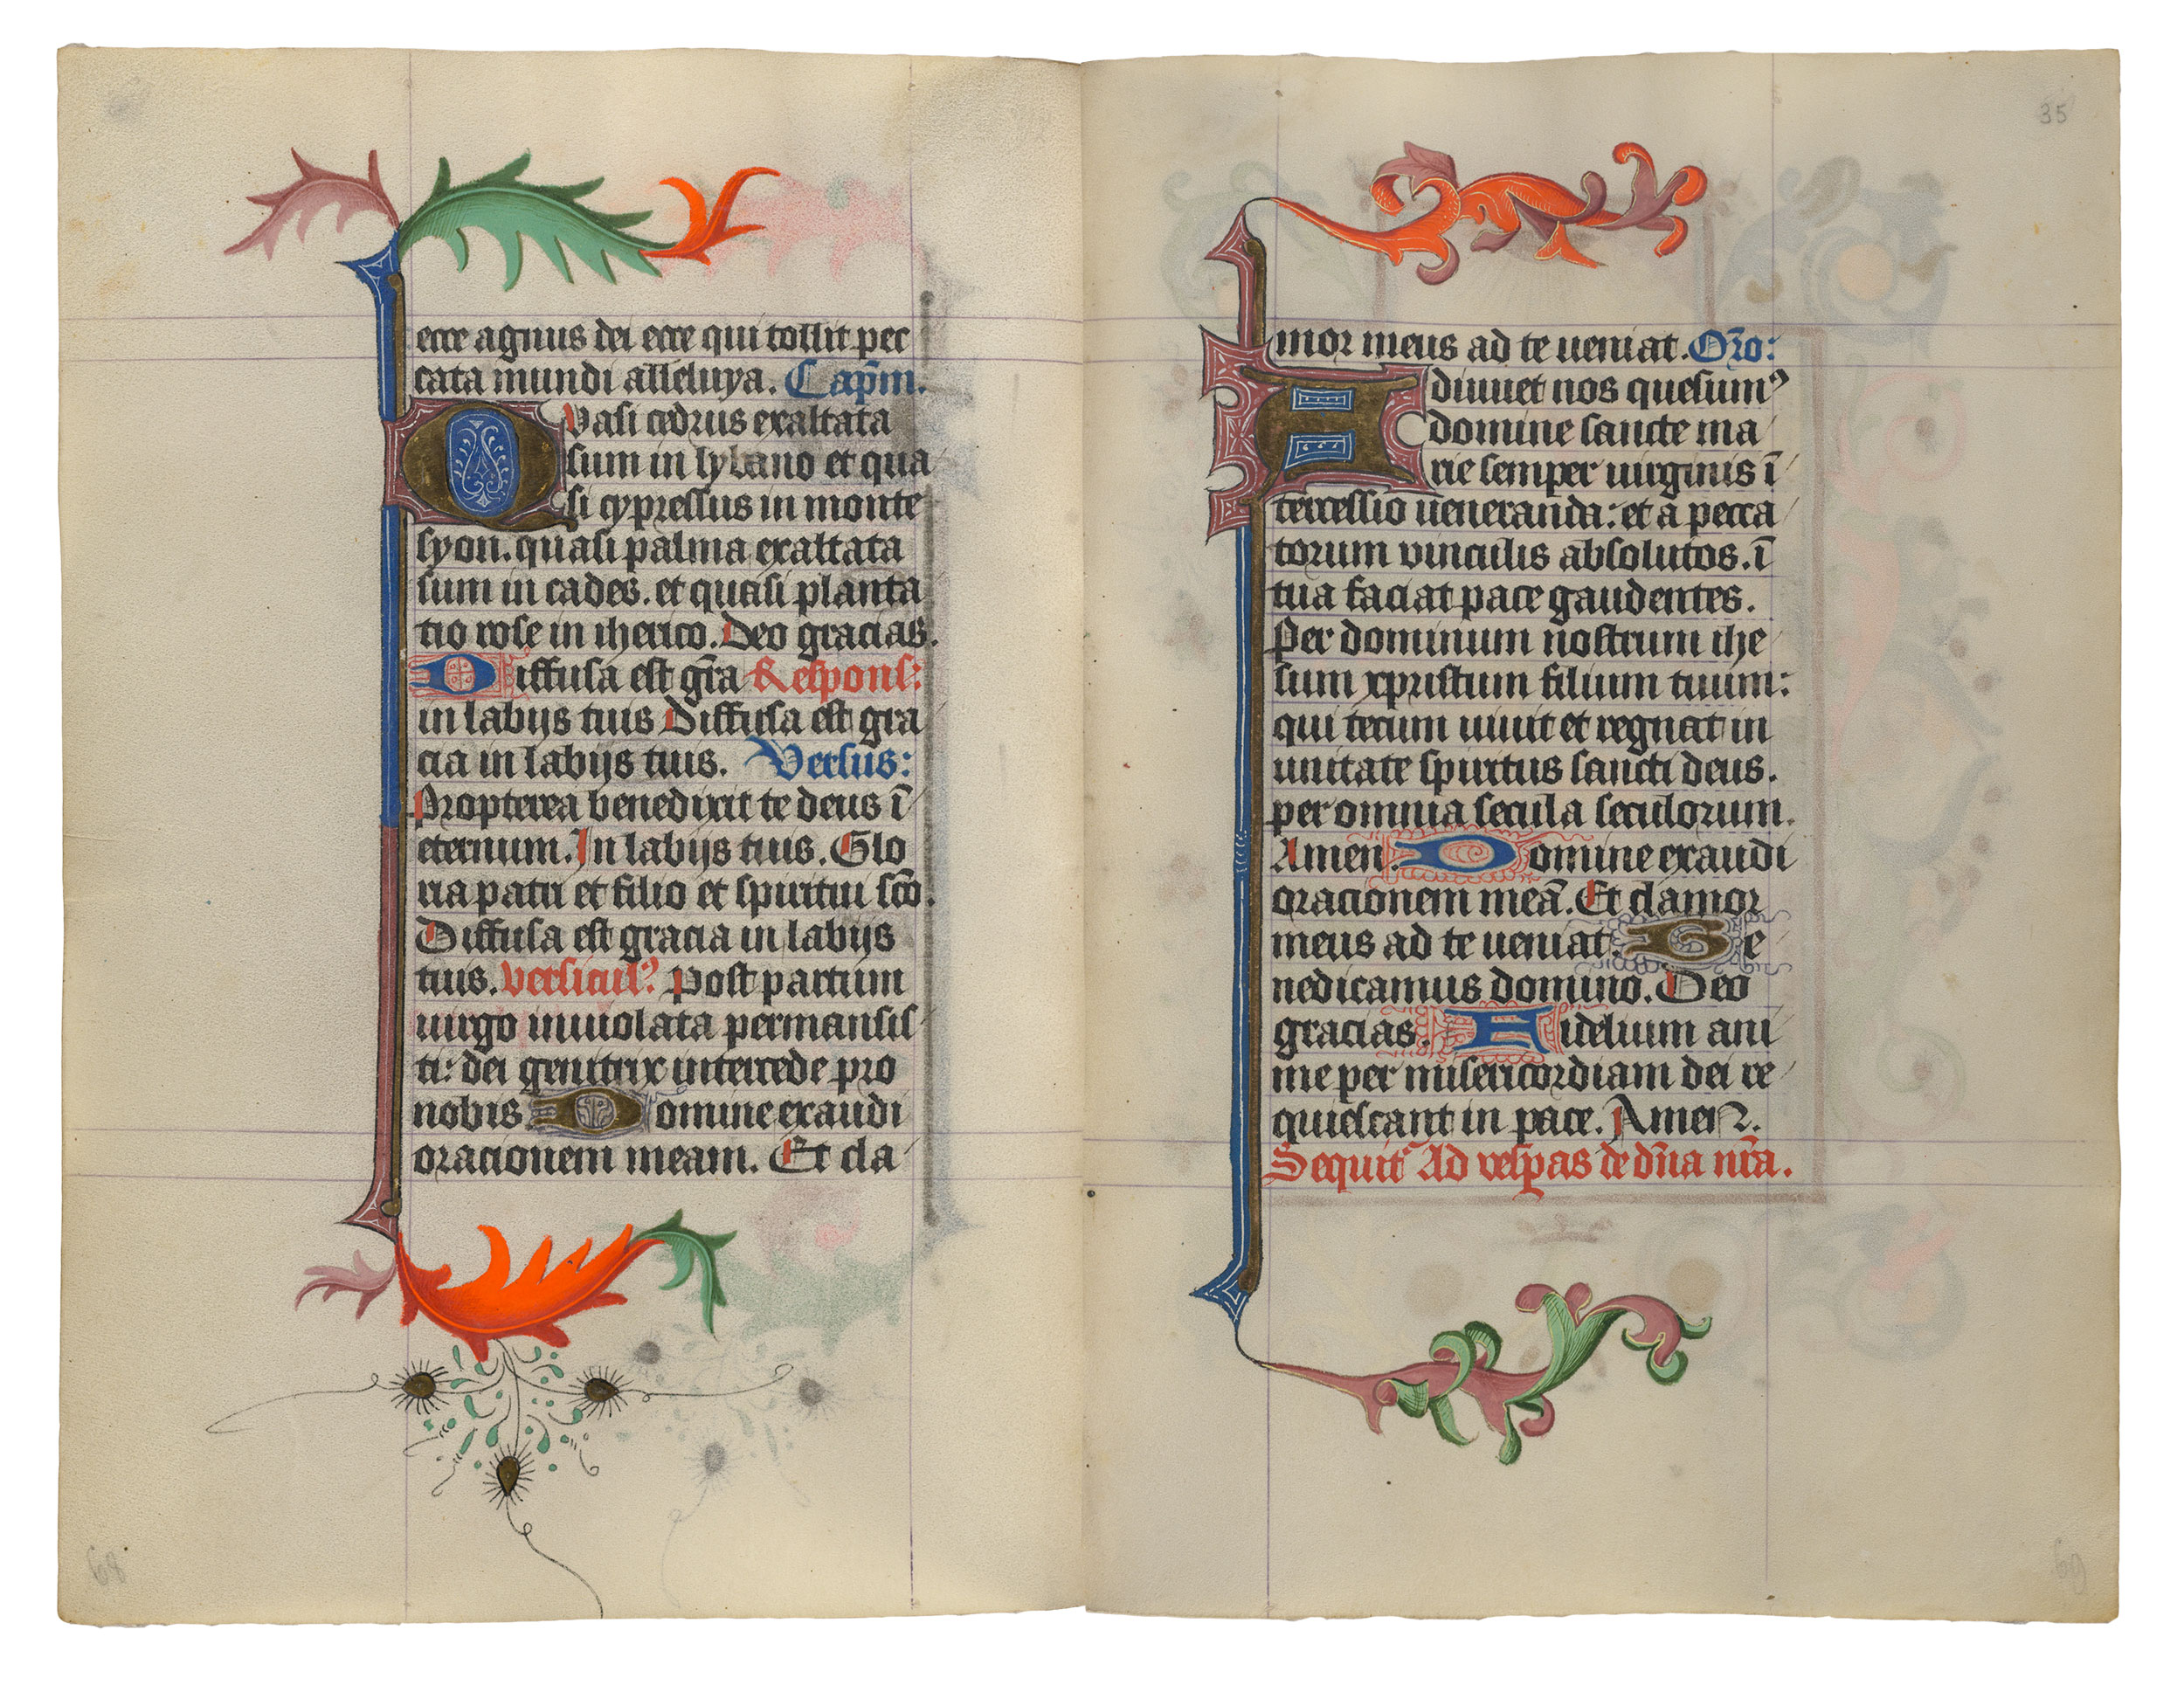 ecce agnus dei ecce qui tollit pec
cata mundi alleluya. Cap̄m.
Quasi cedrus exaltata
sum in lybano et qua
si cypressus in monte
syon. quasi palma exaltata
sum in cades. et quasi planta
tio rose in iherico. Deo gracias.
Diffusa est gr̄a Respons:
in labijs tuis Diffusa est gra
cia in labijs tuis. Versus:
Propterea benedixit te deus ī
eternum. In labijs tuis. Glo
ria patri et filio et spiritui sc̄o.
Diffusa est gracia in labijs
tuis. versicul⁹ Post partum
uirgo inuiolata permansis
ti: dei genitrix intercede pro
nobis Domine exaudi
oracionem meam. Et cla
35
mor meus ad te ueniat. Or̄o:
Adiuuet nos quesum⁹
domine sancte ma
rie semper uirginis ī
tercessio ueneranda: et a pecca
torum vinculis absolutos. ī
tua faciat pace gaudentes.
Per dominum nostrum ihe
sum xpristum filium tuum:
qui tecum uiuit et regnat in
unitate spiritus sancti deus.
per omnia secula seculorum.
Amen. Domine exaudi
oracionem meā. Et clamor
meus ad te ueniat. Be
nedicamus domino. Deo
gracias. Fidelium ani
me per misericordiam dei re
quiescant in pace. Amen.
Sequit᷑ Ad vesp̄as de dn̄a nr̄a.